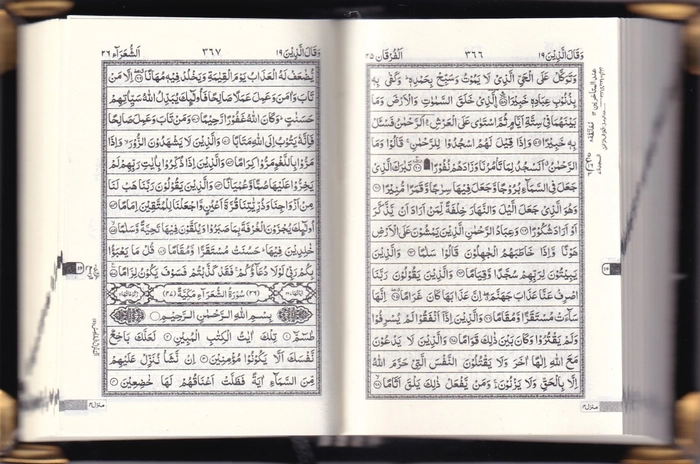 وَقَالَ الَّذِيْنَ ١٩
٣٦٦
اَلْفُرْقَان ٢٥
وَتَوَكَّلْ عَلَى الْحَيِّ الَّذِيْ لَا يَمُوْتُ وَسَبِّحْ بِحَمْدِهٖ ؕ وَكَفٰى بِهٖ
بِذُنُوْبِ عِبَادِهٖ خَبِيْرَا ۟ۙ الَّذِيْ خَلَقَ السَّمٰوٰتِ وَالْاَرْضَ وَمَا
بَيْنَهُمَا فِيْ سِتَّةِ اَيَّامٍ ثُمَّ اسْتَوٰى عَلَى الْعَرْشِ ۛۚ اَلرَّحْمٰنُ فَسْـَٔلْ
بِهٖ خَبِيْرًا ۟ وَاِذَا قِيْلَ لَهُمُ اسْجُدُوْا لِلرَّحْمٰنِ ۚ قَالُوْا وَمَا
الرَّحْمٰنُ ۗ اَنَسْجُدُ لِمَا تَاْمُرُنَا وَزَادَهُمْ نُفُوْرًا ۟ تَبٰرَكَ الَّذِيْ
جَعَلَ فِي السَّمَآءِ بُرُوْجًا وَّجَعَلَ فِيْهَا سِرٰجًا وَّقَمَرًا مُّنِيْرًا ۟
وَهُوَ الَّذِيْ جَعَلَ الَّيْلَ وَالنَّهَارَ خِلْفَةً لِّمَنْ اَرَادَ اَنْ يَّذَّكَّرَ
اَوْ اَرَادَ شُكُوْرًا ۟ وَعِبَادُ الرَّحْمٰنِ الَّذِيْنَ يَمْشُوْنَ عَلَى الْاَرْضِ
هَوْنًا وَّاِذَا خَاطَبَهُمُ الْجٰهِلُوْنَ قَالُوْا سَلٰمًا ۟ وَالَّذِيْنَ
يَبِيْتُوْنَ لِرَبِّهِمْ سُجَّدًا وَّقِيَامًا ۟ وَالَّذِيْنَ يَقُوْلُوْنَ رَبَّنَا
اصْرِفْ عَنَّا عَذَابَ جَهَنَّمَ ۖ اِنَّ عَذَابَهَا كَانَ غَرَامًا ۟ اِنَّهَا
سَآءَتْ مُسْتَقَرًّا وَّمُقَامًا ۟ وَالَّذِيْنَ اِذَآ اَنْفَقُوْا لَمْ يُسْرِفُوْا
وَلَمْ يَقْتُرُوْا وَكَانَ بَيْنَ ذٰلِكَ قَوَامًا ۟ وَالَّذِيْنَ لَا يَدْعُوْنَ
مَعَ اللّٰهِ اِلٰهًا اٰخَرَ وَلَا يَقْتُلُوْنَ النَّفْسَ الَّتِيْ حَرَّمَ اللّٰهُ
اِلَّا بِالْحَقِّ وَلَا يَزْنُوْنَ ۚ وَمَنْ يَّفْعَلْ ذٰلِكَ يَلْقَ اَثَامًا ۟
منزل ٤
وَقَالَ الَّذِيْنَ ١٩
٣٦٧
اَلشُّعَرَآء ٢٦
يُّضٰعَفْ لَهُ الْعَذَابُ يَوْمَ الْقِيٰمَةِ وَيَخْلُدْ فِيْهٖ مُهَانًا ۟ اِلَّا مَنْ
تَابَ وَاٰمَنَ وَعَمِلَ عَمَلًا صَالِحًا فَاُولٰٓئِكَ يُبَدِّلُ اللّٰهُ سَيِّاٰتِهِمْ
حَسَنٰتٍ ؕ وَكَانَ اللّٰهُ غَفُوْرًا رَّحِيْمًا ۟ وَمَنْ تَابَ وَعَمِلَ صَالِحًا
فَاِنَّهٗ يَتُوْبُ اِلَى اللّٰهِ مَتَابًا ۟ وَالَّذِيْنَ لَا يَشْهَدُوْنَ الزُّوْرَ ۙ وَاِذَا
مَرُّوْا بِاللَّغْوِ مَرُّوْا كِرَامًا ۟ وَالَّذِيْنَ اِذَا ذُكِّرُوْا بِاٰيٰتِ رَبِّهِمْ لَمْ
يَخِرُّوْا عَلَيْهَا صُمًّا وَّعُمْيَانًا ۟ وَالَّذِيْنَ يَقُوْلُوْنَ رَبَّنَا هَبْ لَنَا
مِنْ اَزْوَاجِنَا وَذُرِّيّٰتِنَا قُرَّةَ اَعْيُنٍ وَّاجْعَلْنَا لِلْمُتَّقِيْنَ اِمَامًا ۟
اُولٰٓئِكَ يُجْزَوْنَ الْغُرْفَةَ بِمَا صَبَرُوْا وَيُلَقَّوْنَ فِيْهَا تَحِيَّةً وَّسَلٰمًا ۟
خٰلِدِيْنَ فِيْهَا ؕ حَسُنَتْ مُسْتَقَرًّا وَّمُقَامًا ۟ قُلْ مَا يَعْبَؤُا
بِكُمْ رَبِّيْ لَوْلَا دُعَآؤُكُمْ ۚ فَقَدْ كَذَّبْتُمْ فَسَوْفَ يَكُوْنُ لِزَامًا ۟
(٢٦) سُوْرَةُ الشُّعَرَآءِ مَكِّيَّةٌ (٤٧)
بِسْمِ اللّٰهِ الرَّحْمٰنِ الرَّحِيْمِ
طٰسٓمّٓ ۟ تِلْكَ اٰيٰتُ الْكِتٰبِ الْمُبِيْنِ ۟ لَعَلَّكَ بَاخِعٌ
نَّفْسَكَ اَلَّا يَكُوْنُوْا مُؤْمِنِيْنَ ۟ اِنْ نَّشَاْ نُنَزِّلْ عَلَيْهِمْ
مِّنَ السَّمَآءِ اٰيَةً فَظَلَّتْ اَعْنَاقُهُمْ لَهَا خٰضِعِيْنَ ۟